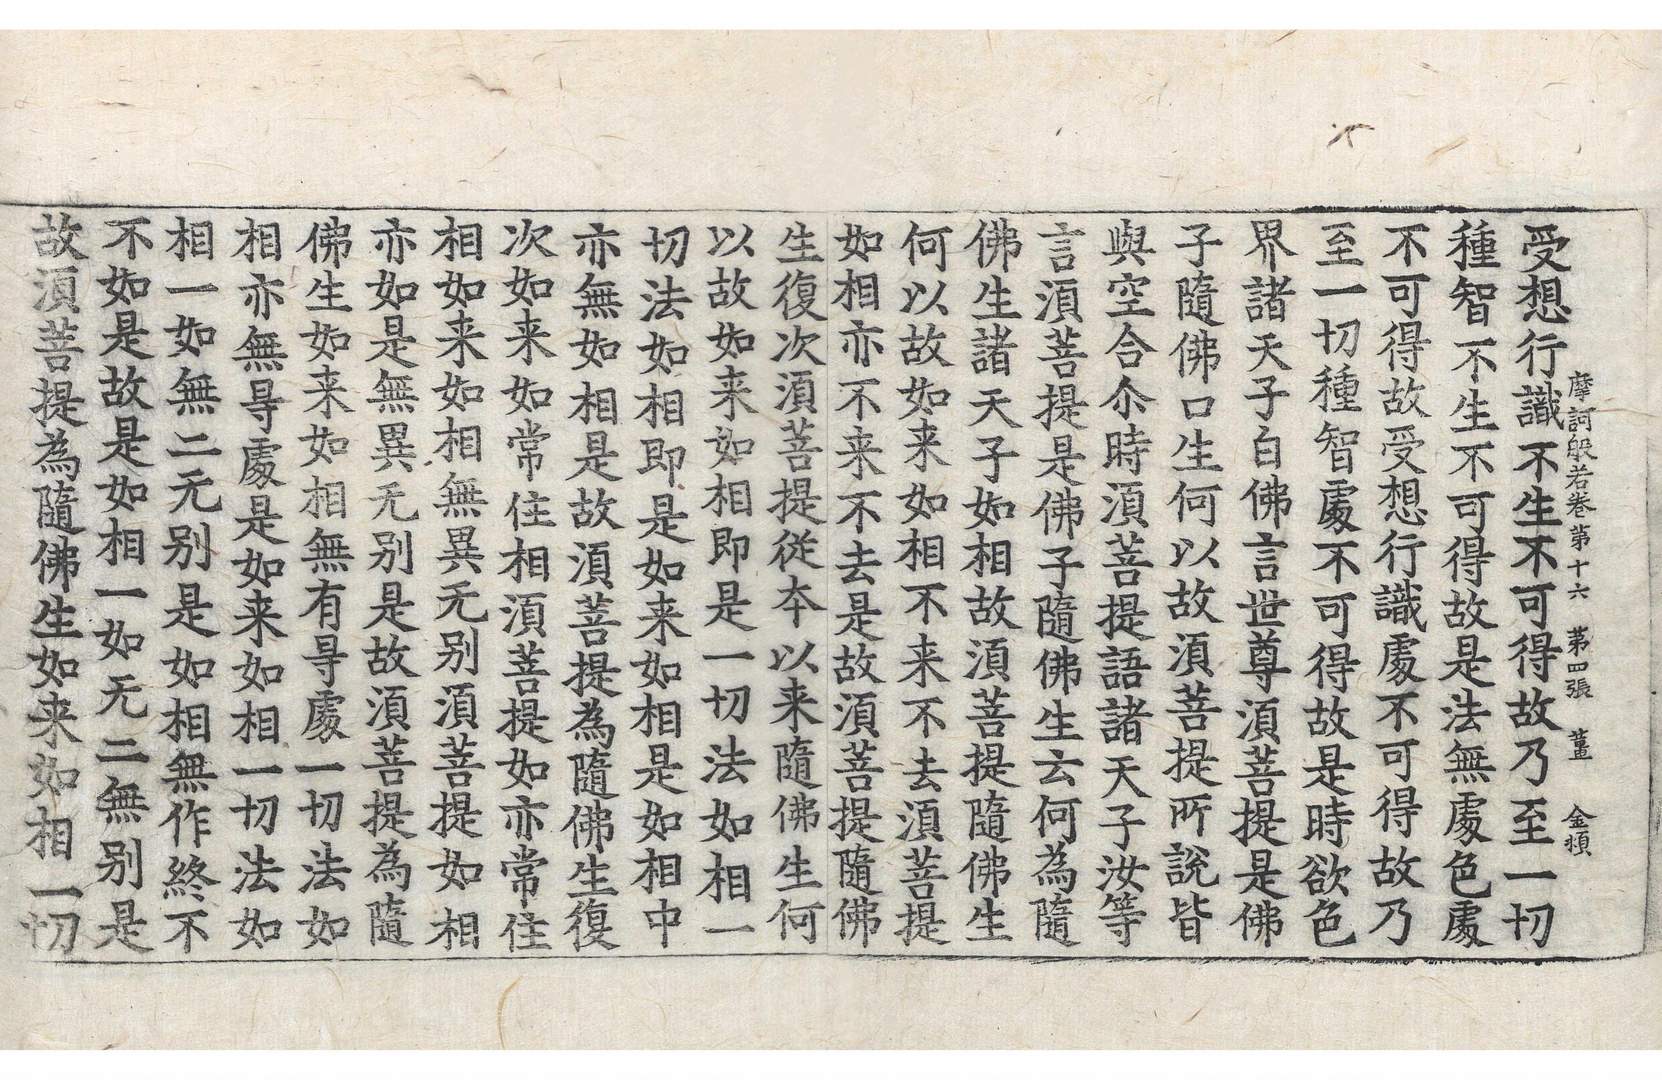 摩訶般若卷第十六 第四張 薑 金
受想行識不生不可得故乃至一切
種智不生不可得故是法無處色處
不可得故受想行識處不可得故乃
至一切種智處不可得故是時欲色
界諸天子白佛言世尊須菩提是佛
子隨佛口生何以故須菩提所說皆
與空合尒時須菩提語諸天子汝等
言須菩提是佛子隨佛生云何為隨
佛生諸天子如相故須菩提隨佛生
何以故如来如相不来不去須菩提
如相亦不来不去是故須菩提隨佛
生復次須菩提從夲以来隨佛生何
以故如来如相即是一切法如相一
切法如相即是如来如相是如相中
亦無如相是故須菩提為隨佛生復
次如来如常住相須菩提如亦常住
相如来如相無異无别須菩提如相
亦如是無異无别是故須菩提為隨
佛生如来如相無有㝵處一切法如
相亦無㝵處是如来如相一切法如
相一如無二无别是如相無作終不
不如是故是如相一如无二無别是
故須菩提為隨佛生如来如相一切